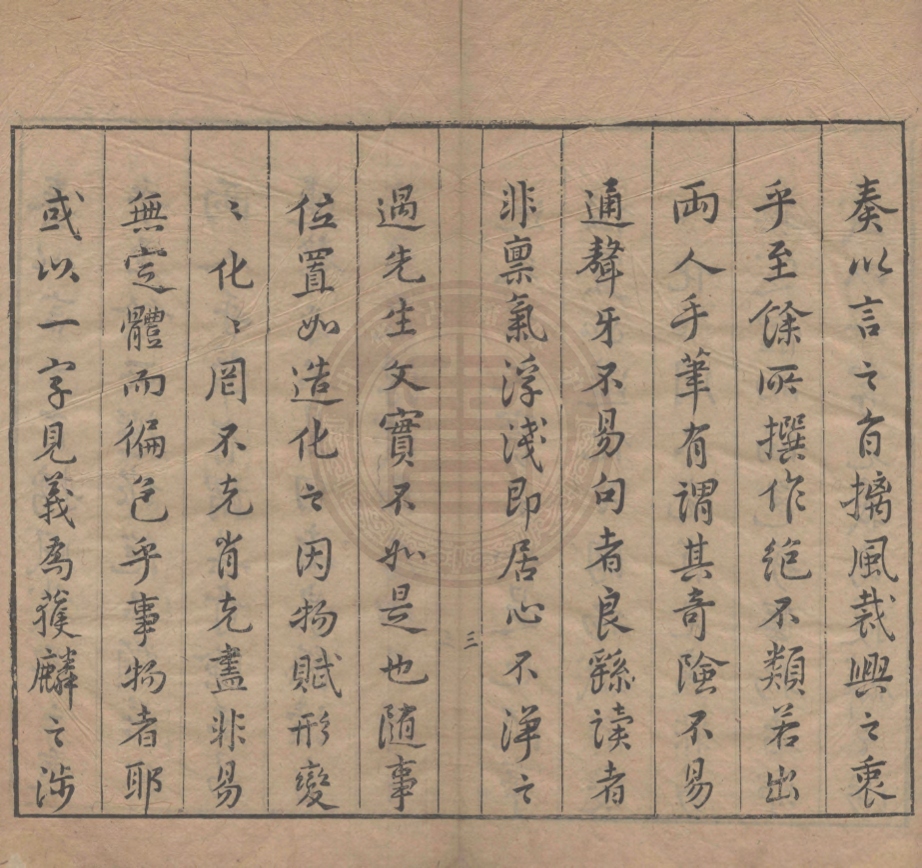 奏以言之自摛風裁興之衷
乎至餘所撰作絕不類若出
兩人手筆有謂其奇險不易
通聱牙不易句者良繇读者
非稟氣浮淺即居心不淨之
過先生文實不如是也随事
位置如造化之因物賦形變
〻化〻罔不克肖克盡非易
無定體而徧包乎事物者耶
或以一字見義為獲麟之涉
三